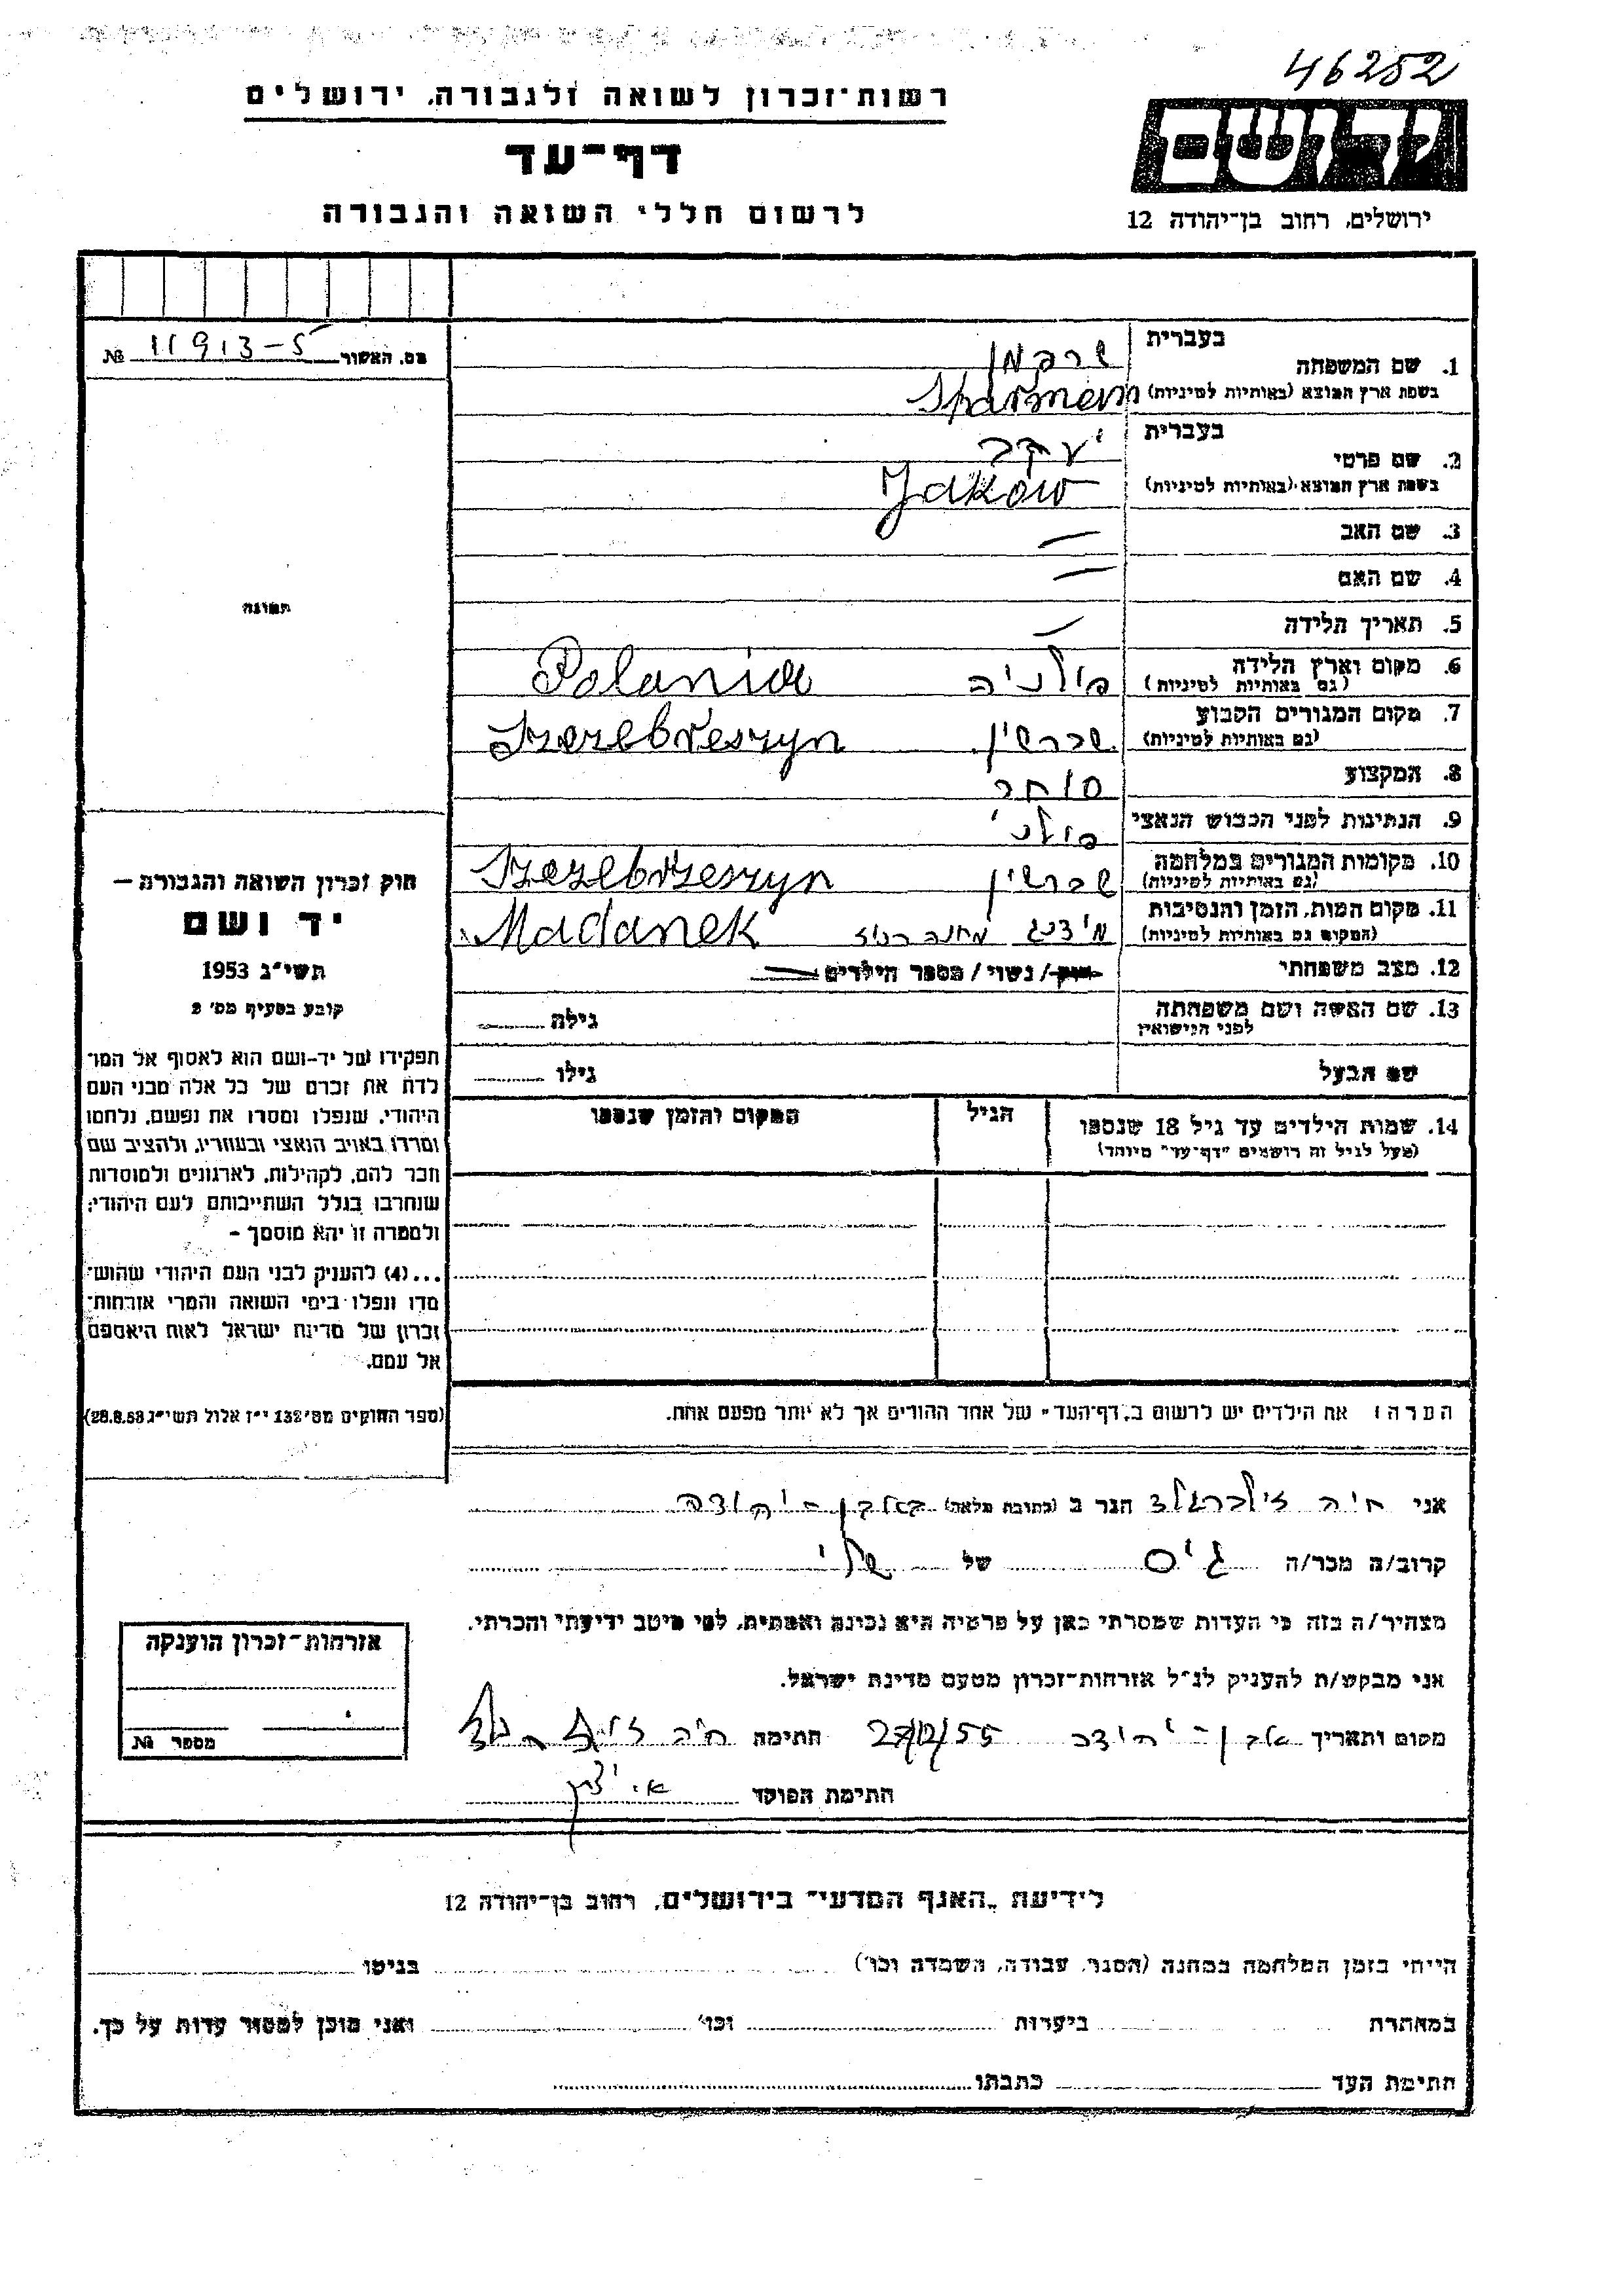 46252
רשות־זכרון לשואה ולגבורה, ירושלים
דף־עד
לרשום חללי השואה והגבורה
יד ושם
ירושלים, רחוב בן־יהודה 12
מס. האשור 11913-5 №
תמונה
1. שם המשפחה בעברית שרפמן
בשפת ארץ המוצא (באותיות לטיניות)
2. שם פרטי בעברית יעקב
בשפת ארץ המוצא (באותיות לטיניות) Jakow
3. שם האב —
4. שם האם —
5. תאריך הלידה —
6. מקום וארץ הלידה (גם באותיות לטיניות) פולניה Polania
7. מקום המגורים הקבוע (גם באותיות לטיניות) שברשין Szczebrzeszyn
8. המקצוע סוחר
9. הנתינות לפני הכבוש הנאצי פולני
10. מקומות המגורים במלחמה (גם באותיות לטיניות) שברשין Szczebrzeszyn
11. מקום המות, הזמן והנסיבות (המקום גם באותיות לטיניות) מידנג מחנה רכוז Madanek
12. מצב משפחתי רווק / נשוי / מספר הילדים
13. שם האשה ושם משפחתה לפני הנישואין גילה
שם הבעל גילו
14. שמות הילדים עד גיל 18 שנספו (מעל לגיל זה רושמים "דף־עד" מיוחד) הגיל המקום והזמן שנספו
חוק זכרון השואה והגבורה —
יד ושם
תשי"ג 1953
קובע בסעיף מס' 2
תפקידו של יד-ושם הוא לאסוף אל המו־
לדת את זכרם של כל אלה מבני העם
היהודי, שנפלו ומסרו את נפשם, נלחמו
ומרדו באויב הנאצי ובעוזריו, ולהציב שם
וזכר להם, לקהילות, לארגונים ולמוסדות
שנחרבו בגלל השתייכותם לעם היהודי;
ולמטרה זו יהא מוסמך –
...(4) להעניק לבני העם היהודי שהוש־
מדו ונפלו בימי השואה והמרי אזרחות־
זכרון של מדינת ישראל לאות היאספם
אל עמם.
(ספר החוקים מס' 132 י"ז אלול תשי"ג 28.8.53)
הערה: את הילדים יש לרשום ב"דף־העד" של אחד ההורים אך לא יותר מפעם אחת.
אני חיה זילברגולד הגר ב (כתובת מלאה) באבן-יהודה
קרוב/ה מכר/ה גיס של שלי
מצהיר/ה בזה כי העדות שמסרתי כאן על פרטיה היא נכונה ואמתית, לפי מיטב ידיעתי והכרתי.
אני מבקש/ת להעניק לנ"ל אזרחות־זכרון מטעם מדינת ישראל.
מקום ותאריך אבן-יהודה חתימת חיה
חתימת הפוקד
אזרחות־זכרון הוענקה
מספר №
לידיעת "האגף המדעי" בירושלים, רחוב בן־יהודה 12
הייתי בזמן המלחמה במחנה (הסגר, עבודה, השמדה וכו') בגיטו
במאחרת ביערות וכו' ואני מוכן למסור עדות על כך.
חתימת העד כתבתו